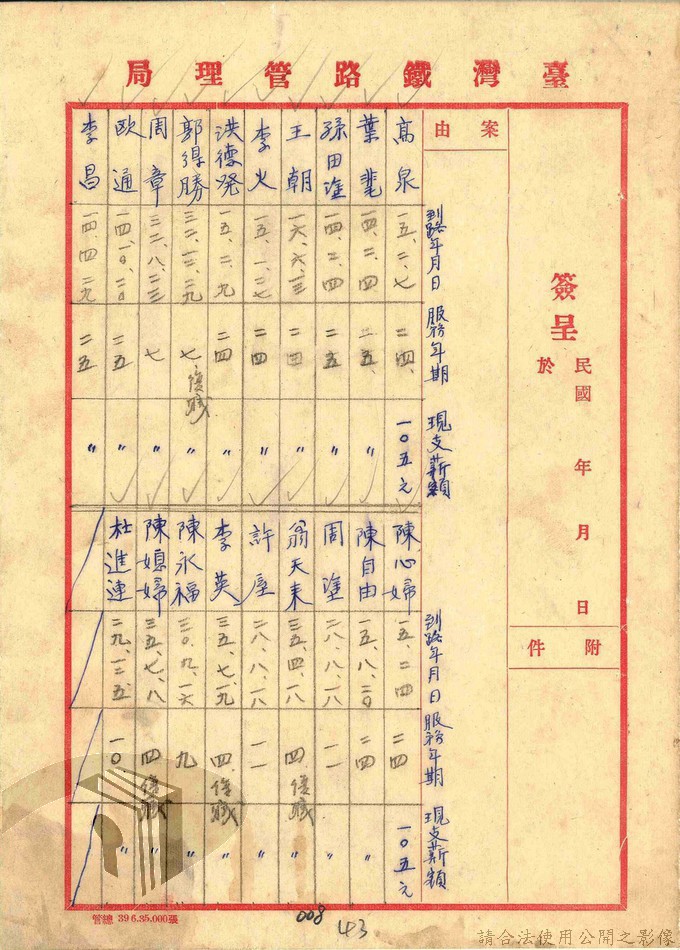 臺灣鐵路管理局
簽呈
於
民國 年 月 日
附件
案由
到路年月日 服務年期 現支薪額
高泉 一五、二、七 二四、 一〇五元
葉 一四、二、四 二五、 〃
孫田塗 一四、二、四 二五 〃
王朝 一六、六、一三 〃
李火 一五、一、二七 二四 〃
洪德發 一五、二、九 二四 〃
郭得勝 三二、一二、二九 七、復職 〃
周章 三二、八、二三 七 〃
歐通 一四、一〇、二〇 二五 〃
李昌 一四、四、二九 二五 〃
到路年月日 服務年期 現支薪額
陳心婦 一五、二四 二四 一〇五元
陳自由 一五、八、二〇 二四 〃
周塗 二八、八、一八 一一 〃
翁天來 三五、四、一八 四、復職 〃
許 二八、八、一八 一一 〃
李英 三五、七、一九 四、復職 〃
陳永福 三〇、九、一六 九 〃
陳媳婦 三五、七、八 四、復職 〃
杜進連 二九、一二、五、 一〇 〃
管總 39 6.35,000張
008
43
請合法使用公開之影像